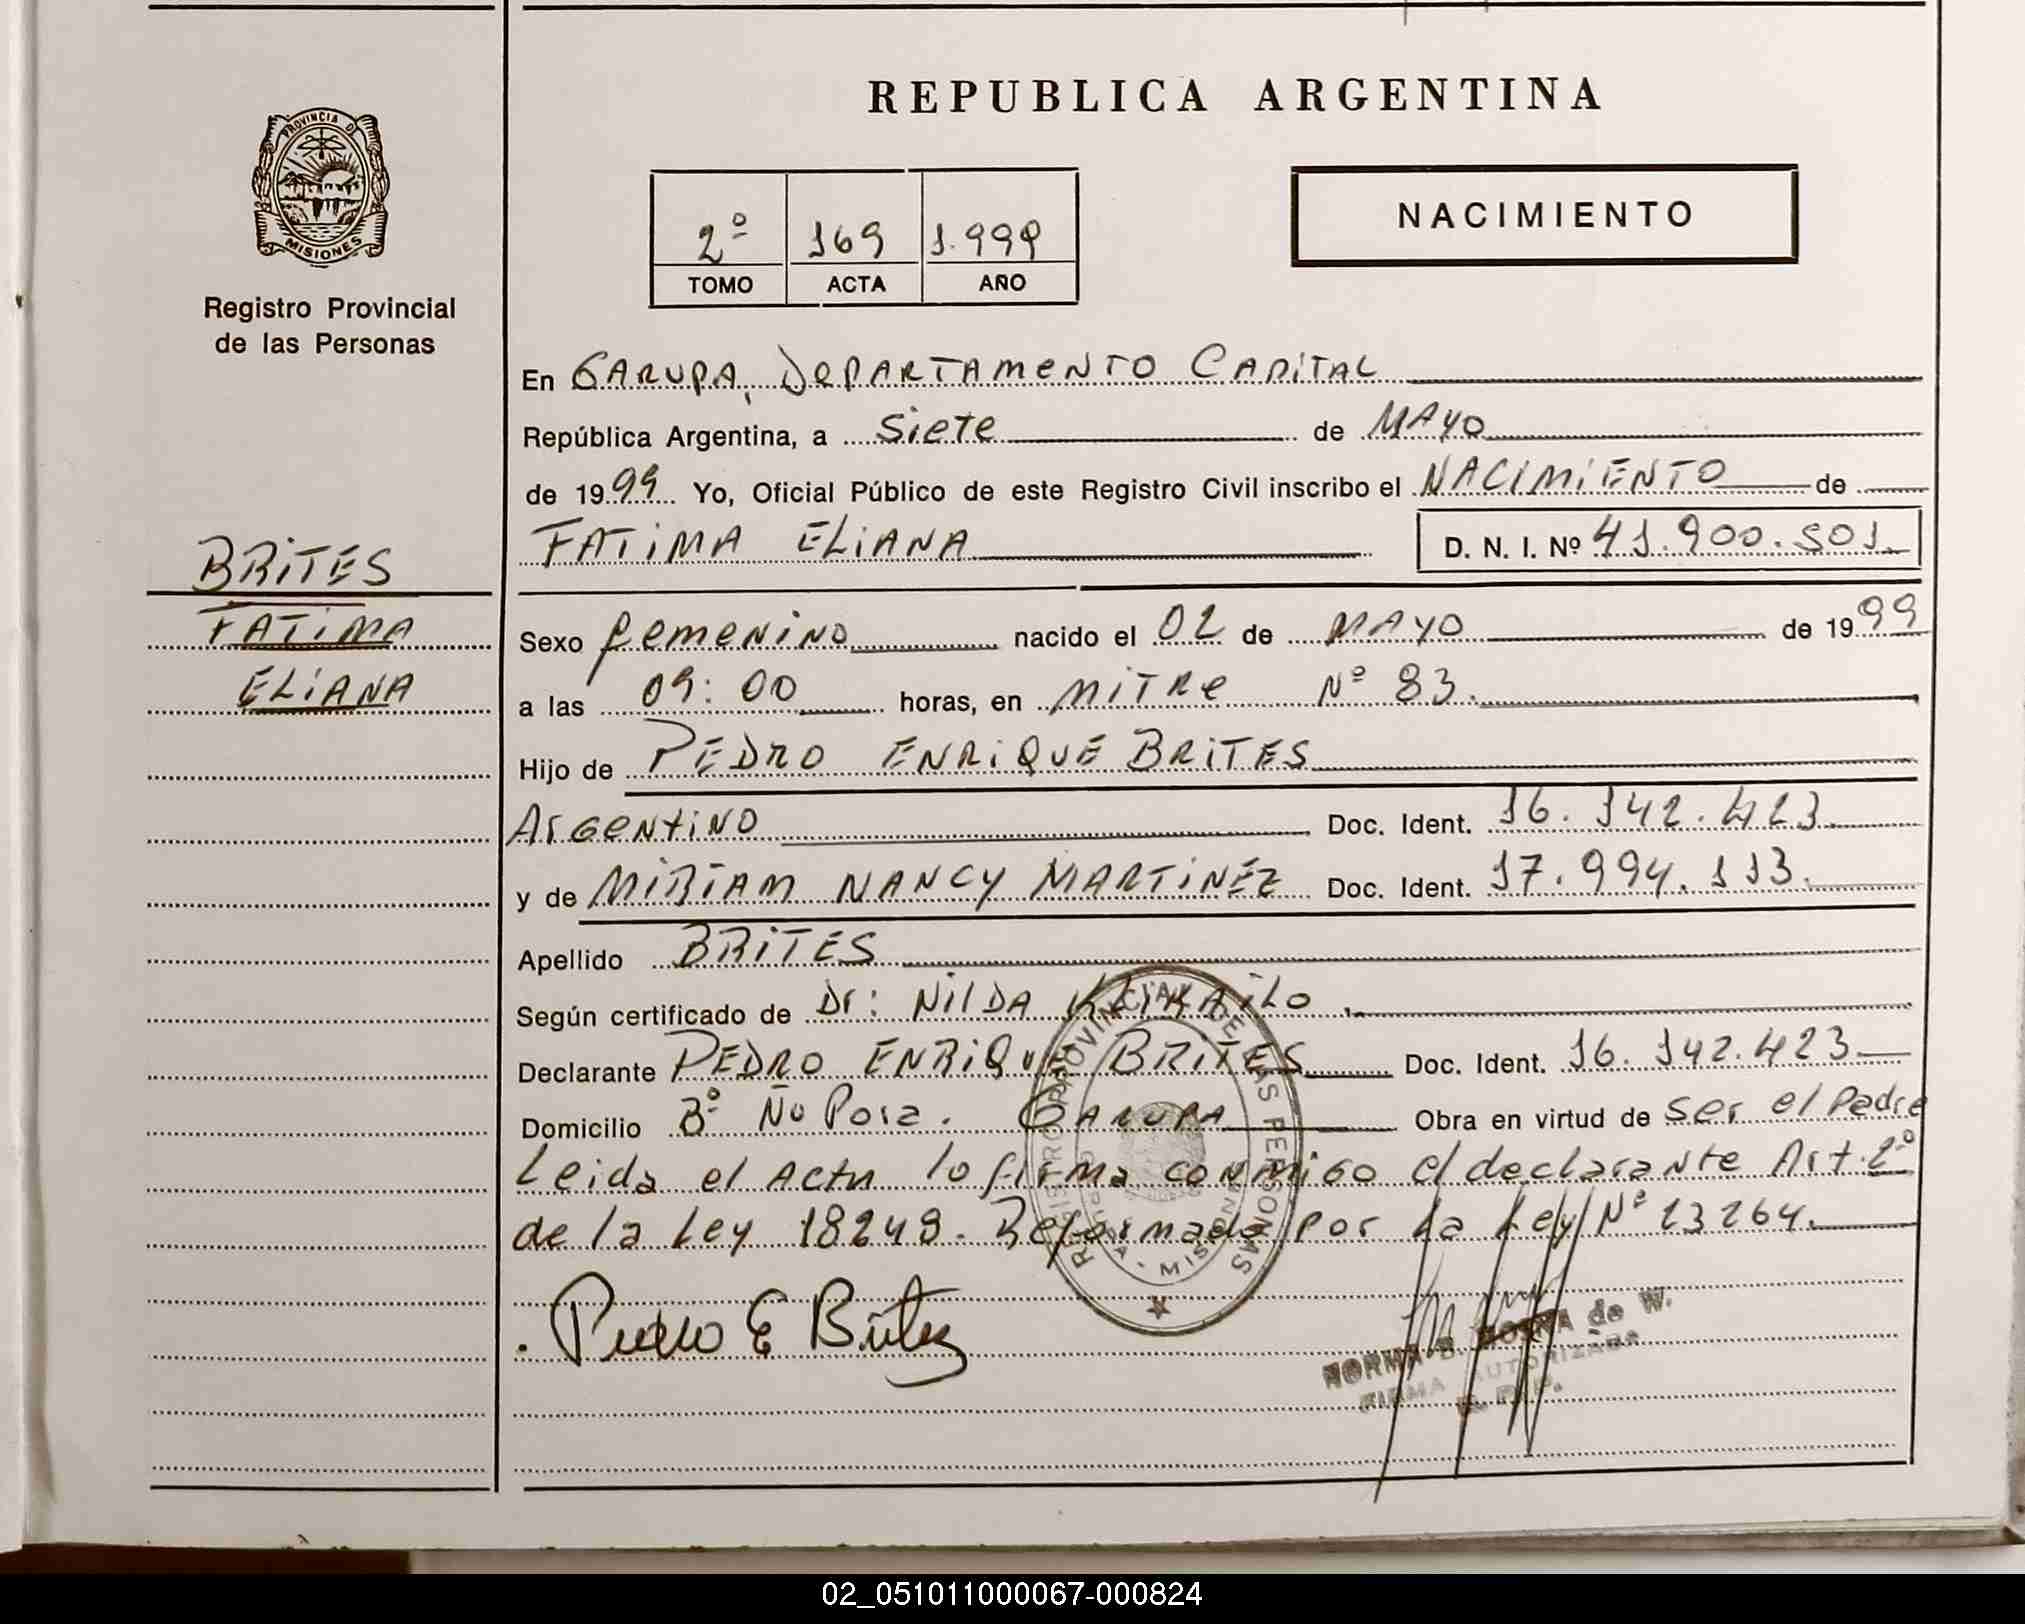 REPUBLICA ARGENTINA
PROVINCIA D
MISIONES
Registro Provincial
de las Personas
NACIMIENTO
2º 169 1.999
TOMO ACTA AÑO
En GARUPA, DEPARTAMENTO CAPITAL
República Argentina, a siete de MAYO
de 1999 Yo, Oficial Público de este Registro Civil inscribo el NACIMIENTO de
FATIMA ELIANA D. N. I. Nº 41.900.501.
BRITES
FATIMA
ELIANA
Sexo femenino nacido el 02 de MAYO de 1999
a las 09:00 horas, en MITRE Nº 83.
Hijo de PEDRO ENRIQUE BRITES
Argentino Doc. Ident. 16.142.423.
y de MIRIAM NANCY MARTINEZ Doc. Ident. 17.994.113.
Apellido BRITES
Según certificado de Dr: NILDA
Declarante PEDRO ENRIQUE BRITES Doc. Ident. 16.142.423
Domicilio Bº Ñu Pora. GARUPA Obra en virtud de ser el Padre
Leida el Acta lo firma conmigo el declarante Art. 2º
de la Ley 18248. Reformada por la Ley Nº 23264.
REGISTRO PROVINCIAL DE LAS PERSONAS
GARUPA - MISIONES
Pedro E Brites
NORMA B. de W.
FIRMA AUTORIZADA
R. P. P.
02_051011000067-000824